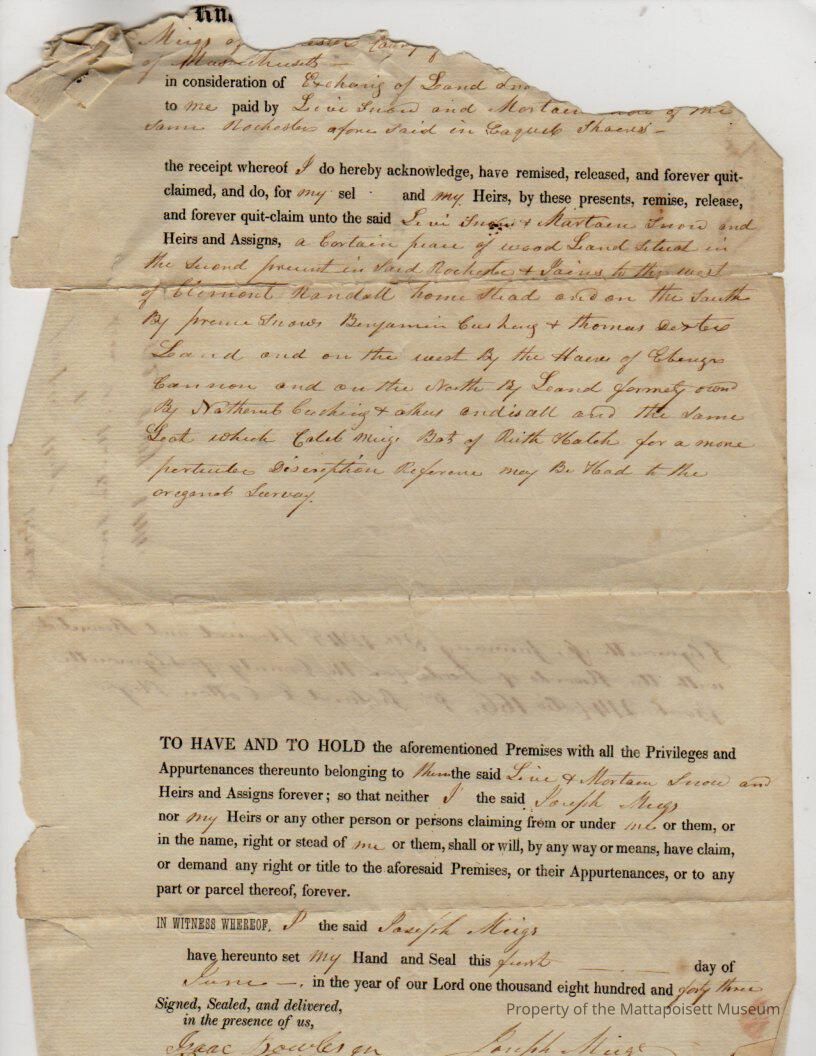 Meigs of
of Massachusetts
in consideration of Exchang of Land
to me paid by Levi Snow and Mortain Snow of the
same Rochester afore said in Eaquel Shaers
the receipt whereof I do hereby acknowledge, have remised, released, and forever quit-
claimed, and do, for my sel and my Heirs, by these presents, remise, release,
and forever quit-claim unto the said Levi Snow & Martain Snow and
Heirs and Assigns, a Certain peace of wood Land Situat in
the Second precinct in Said Rochester & to the west
of Clemont Randall home Stead and on the South
By prence Snows Benjamin Cushing & thomas Dexter
Land and on the west By the Haires of Ebenezr
Cannon and on the North By Land formely own
By Nathanel Cushing & and is all and the Same
Lot which Caleb Meigs Bot of Ruth Hatch for a more
perticuler Discreption Referance may Be Had to the
oreganel Survay.
TO HAVE AND TO HOLD the aforementioned Premises with all the Privileges and
Appurtenances thereunto belonging to them the said Live & Mortain Snow and
Heirs and Assigns forever; so that neither I the said Joseph Meigs
nor my Heirs or any other person or persons claiming from or under me or them, or
in the name, right or stead of me or them, shall or will, by any way or means, have claim,
or demand any right or title to the aforesaid Premises, or their Appurtenances, or to any
part or parcel thereof, forever.
IN WITNESS WHEREOF, I the said Joseph Meigs
have hereunto set my Hand and Seal this first day of
June, in the year of our Lord one thousand eight hundred and forty three
Signed, Sealed, and delivered,
in the presence of us,
Isaac Joseph Meigs
Property of the Mattapoisett Museum